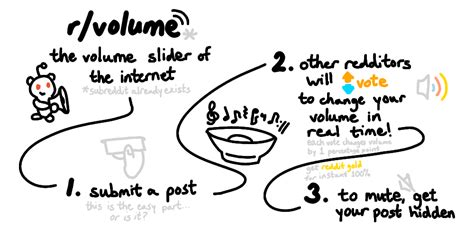 r/volume*
the volume slider of
the internet
*subreddit already exists
1. submit a post
this is the easy part...
or is it?
2. other redditors
will vote
to change your
volume in
real time!
Each vote changes volume
by 1 percentage point
get reddit gold
for instant 100%
3. to mute, get
your post hidden